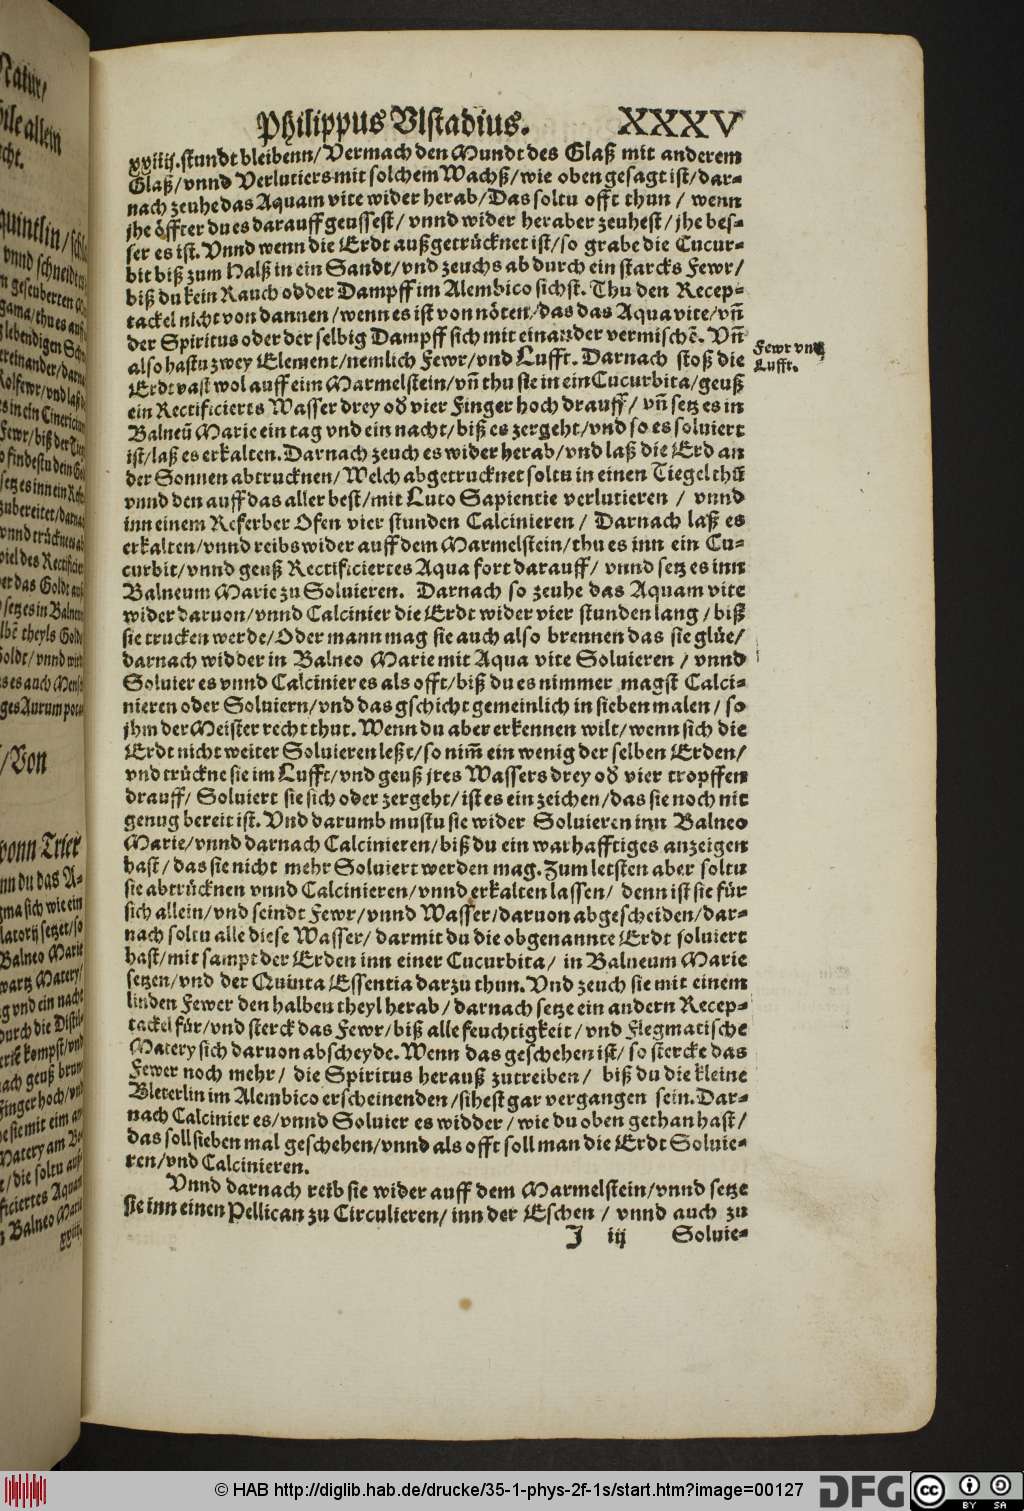 Philippus Vlstadius. XXXV
xxiiij.stundt bleibenn/Vermach den Mundt des Glaß mit anderem
Glaß/vnnd Verlutiers mit solchem Wachß/wie oben gesagt ist/dar-
nach zeuhe das Aquam vite wider herab/Das soltu offt thun / wenn
jhe öffter du es darauff geussest/ vnnd wider heraber zeuhest/ jhe bes-
ser es ist. Vnnd wenn die Erdt außgetrücknet ist/so grabe die Cucur-
bit biß zum Halß in ein Sandt/vnd zeuchs ab durch ein starcks Fewr/
biß du kein Rauch odder Dampff im Alembico sichst. Thu den Recep-
tackel nicht von dannen/wenn es ist von nöten/das das Aqua vite/vñ
der Spiritus oder der selbig Dampff sich mit einander vermischẽ. Vñ
also hastu zwey Element/nemlich Fewr/vnd Lufft. Darnach stoß die
Erdt vast wol auff eim Marmelstein/vñ thu sie in ein Cucurbita/geuß
ein Rectificierts Wasser drey oď vier Finger hoch drauff/ vñ setz es in
Balneũ Marie ein tag vnd ein nacht/biß es zergeht/vnd so es soluiert
ist/laß es erkalten. Darnach zeuch es wider herab/vnd laß die Erd an
der Sonnen abtrucknen/Welch abgetrucknet soltu in einen Tiegel thũ
vnnd den auff das aller best/mit Luto Sapientie verlutieren / vnnd
inn einem Referber Ofen vier stunden Calcinieren/ Darnach laß es
erkalten/vnnd reibs wider auff dem Marmelstein/thu es inn ein Cu-
curbit/vnnd geuß Rectificiertes Aqua fort darauff/ vnnd setz es inn
Balneum Marie zu Soluieren. Darnach so zeuhe das Aquam vite
wider daruon/vnnd Calcinier die Erdt wider vier stunden lang/ biß
sie trucken werde/Oder mann mag sie auch also brennen das sie glüe/
darnach widder in Balneo Marie mit Aqua vite Soluieren / vnnd
Soluier es vnnd Calcinier es als offt/biß du es nimmer magst Calci-
nieren oder Soluiern/vnd das gschicht gemeinlich in sieben malen/ so
jhm der Meister recht thut. Wenn du aber erkennen wilt/wenn sich die
Erdt nicht weiter Soluieren leßt/so nim̃ ein wenig der selben Erden/
vnd trückne sie im Lufft/vnd geuß jres Wassers drey oď vier tropffen
drauff/ Soluiert sie sich oder zergeht/ist es ein zeichen/das sie noch nit
genug bereit ist. Vnd darumb mustu sie wider Soluieren inn Balneo
Marie/vnnd darnach Calcinieren/biß du ein warhafftiges anzeigen
hast/ das sie nicht mehr Soluiert werden mag. Zum letsten aber soltu
sie abtrücknen vnnd Calcinieren/vnnd erkalten lassen/ denn ist sie für
sich allein/vnd seindt Fewr/vnnd Wasser/daruon abgescheiden/dar-
nach soltu alle diese Wasser/ darmit du die obgenannte Erdt soluiert
hast/mit sampt der Erden inn einer Cucurbita/ in Balneum Marie
setzen/vnd der Quinta Essentia darzu thun. Vnd zeuch sie mit einem
linden Fewer den halben theyl herab/ darnach setze ein andern Recep-
tackel für/vnd sterck das Fewr/biß alle feuchtigkeit/vnd Flegmatische
Matery sich daruon abscheyde. Wenn das geschehen ist/ so stercke das
Fewer noch mehr/ die Spiritus herauß zutreiben/ biß du die kleine
Bleterlin im Alembico erscheinenden/sihest gar vergangen sein. Dar-
nach Calcinier es/vnnd Soluier es widder/wie du oben gethan hast/
das soll sieben mal geschehen/vnnd als offt soll man die Erdt Soluie-
ren/vnd Calcinieren.
Vnnd darnach reib sie wider auff dem Marmelstein/vnnd setze
sie inn einen Pellican zu Circulieren/ inn der Eschen / vnnd auch zu
J iij Soluie-
Fewr vnd
Lufft.
© HAB http://diglib.hab.de/drucke/35-1-phys-2f-1s/start.htm?image=00127
DFG
cc
BY SA